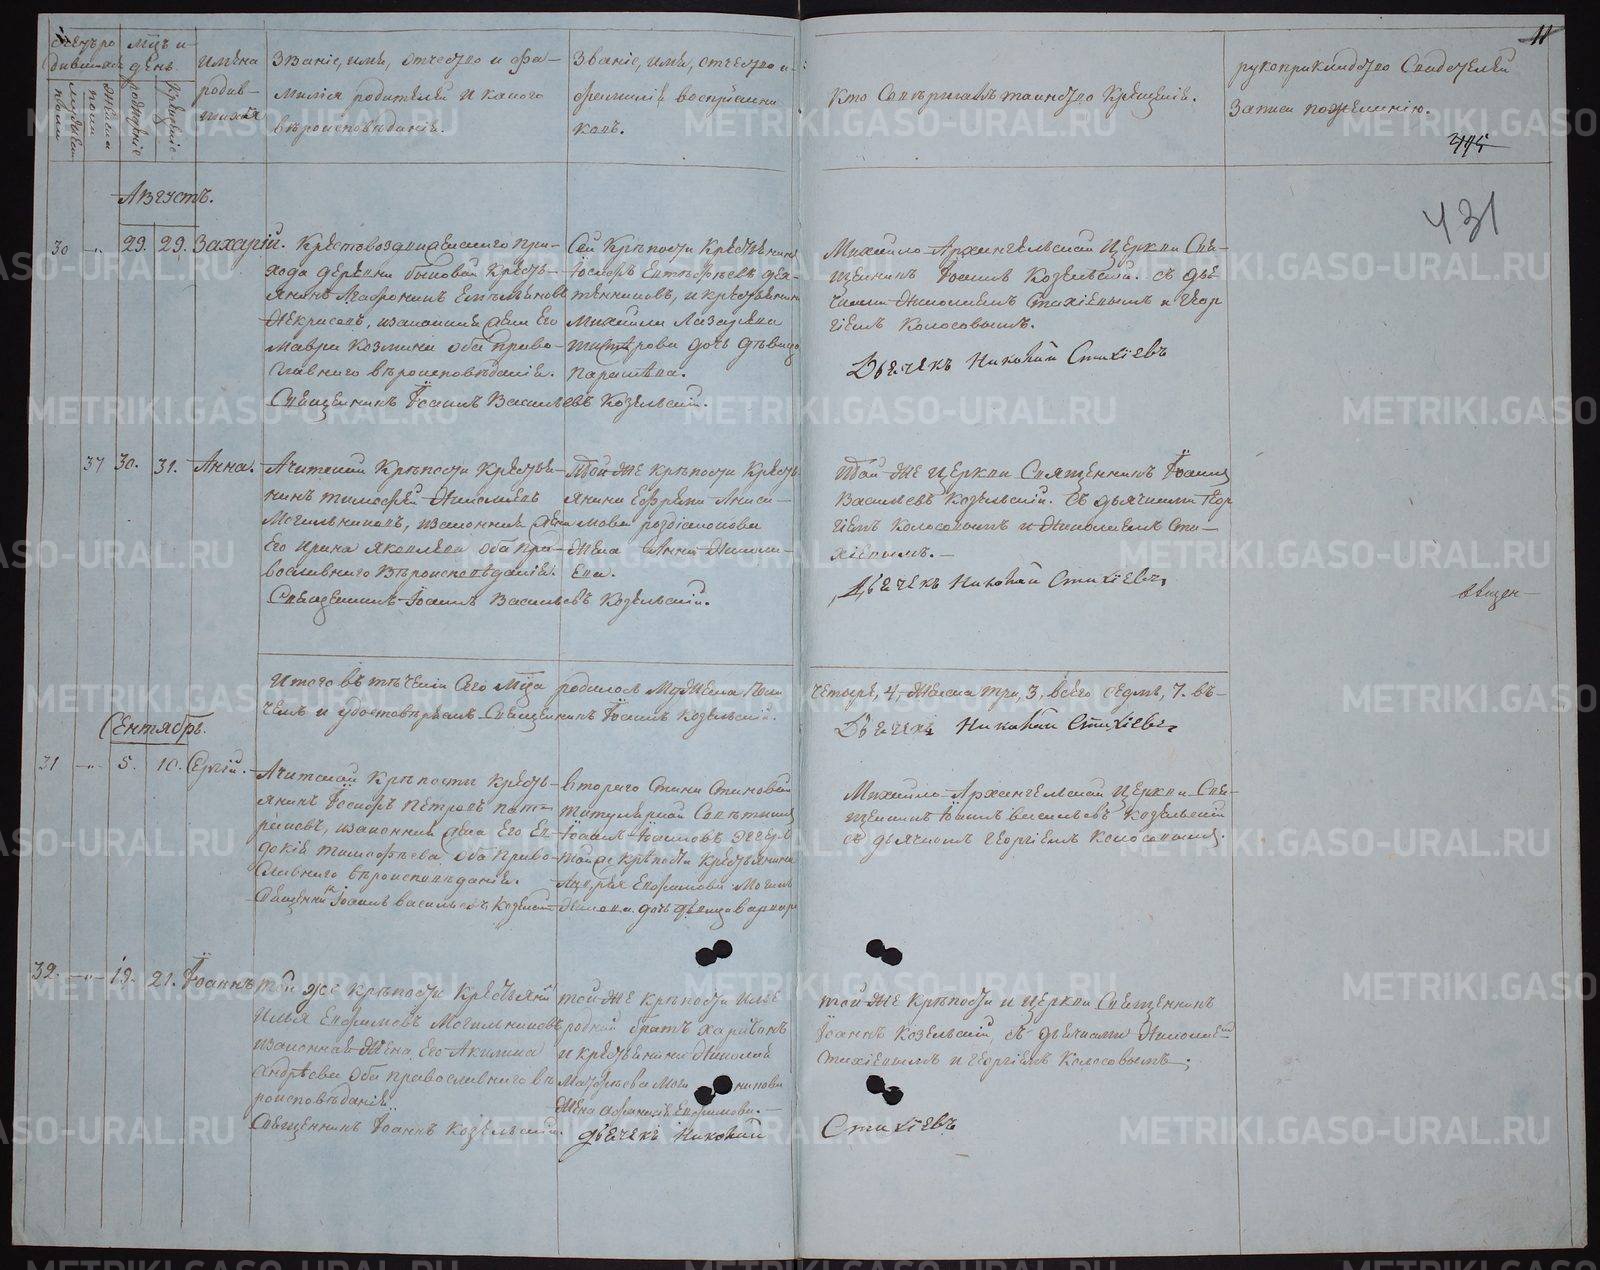 11
Счетъ ро
дившихся
мужеска
пола
женска
пола
Мць и
день
рожденiе
крещенiе
Имена
родив-
шихся
Званiе, имя, отчество и фа-
милiя родителей и какого
вѣроисповѣданiя.
Званiе, имя, отчество и
фамилiя воспрiемни
ковъ.
Кто совершалъ таинство крещенiя.
рукоприкладство свидетелей
записи по желанiю.
445
431
Августъ.
30 - " 29. 29. Захарiй.
Крестовоздвиженскаго при-
хода деревни быковой кресть-
янинъ Агафонникъ Емельяновъ
Некрасовъ, изаконная жена Его
Мавра Козмина оба право-
славнаго вѣроисповѣданiя.
Священникъ Iоаннъ Васильевъ Козельскiй.
Сей Крѣпости Крестьянинъ
Iосифъ Евтифѣевъ
и крестьянина
Михаила Лазарева
дочь дѣвица
Параскева.
Михаило-Архангельской Церкви Свя-
щенникъ Iоаннъ Козельскiй. съ дья-
чками Николаемъ Стахiевымъ и Геор
гiемъ Колосовымъ.
Дьячекъ Николай Стахiевъ
37 30. 31. Анна.
Ачитской Крѣпости Крестья-
нинъ тимофей Николаевъ
Могильниковъ, изаконная жена
его Ирина Яковлева оба пра-
вославнаго вѣроисповѣданiя.
Священникъ Iоаннъ Васильевъ Козельскiй.
Той-же крѣпости Кресть-
янина Ефрема Аниси-
мова
жена Анна Никола-
ева.
Той-же церкви Священникъ Iоаннъ
Васильевъ Козельскiй. съ дьячками Геор
гiемъ Колосовымъ и Николаемъ Ста-
хiевымъ. -
Дьячекъ Николай Стахiевъ,
Итого въ теченiи сего Мца родилось Мужеска пола
четыре, 4, Женска три, 3, всего седмь, 7. въ-
чемъ и удостовѣряемъ Священникъ Iоаннъ Козельскiй.
Дьячекъ Николай Стахiевъ
Сентябрь.
31 - " - 5. 10. Сергiй.
Ачитской Крѣпости кресть-
янинъ Iосифъ Петровъ
изаконная жена Его Ев-
докiя тимофѣева, оба право-
славнаго вѣроисповѣданiя.
Священникъ Iоаннъ васильевъ Козельскiй
втораго Стана Становой
титулярный Совѣтникъ
Iоаннъ Iоанновъ
той же крѣпости крестьянина
Андрея Ефимова Могиль
никова дочь дѣвица варвара
Михаило-Архангельской церкви Свя-
щенникъ Iоаннъ васильевъ Козельскiй
съ дьячкомъ Георгiемъ Колосовымъ.
32. - " - 19. 21. Iоаннъ
той же крѣпости Крестьянинъ
Илья Ефимовъ Могильниковъ
изаконная жена, Его Акилина
Андрѣева оба православнаго вѣ
роисповѣданiя
Священникъ Iоаннъ Козельскiй.
той-же Крѣпости Ильѣ
родной братъ харитонъ
и крестьянина Николая
Матфѣева Моги никова
жена афанасiя Ефимова. -
дьячекъ Николай
Стахiевъ
той-же Крѣпости и Церкви Священникъ
Iоаннъ Козельскiй, съ дьячками Николаемъ
Стахiевымъ и георгiемъ Колосовымъ.
METRIKI.GASO-URAL.RU